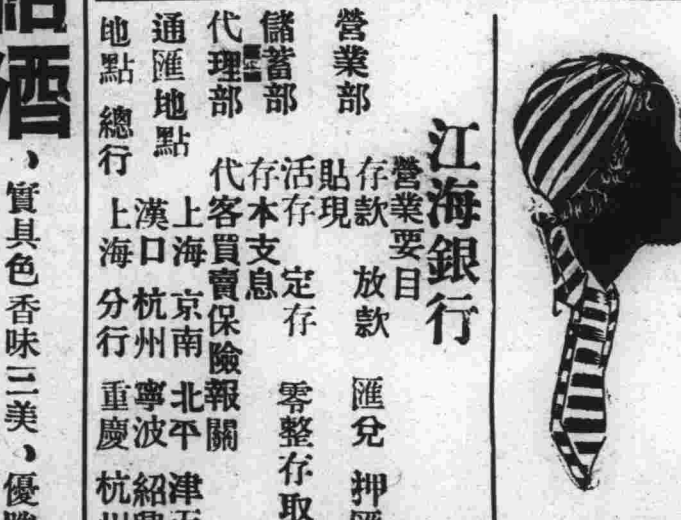 江海銀行
營業要目
營業部 存款 放款 匯兌 押匯
貼現
儲蓄部 活存 定存 零整存取
存本支息
代理部 代客買賣保險報關
通匯地點 上海 京南 北平 津
漢口 杭州 寧波 紹興
地點 總行 上海 分行 重慶 杭州
酒
、實具色香味三美、優